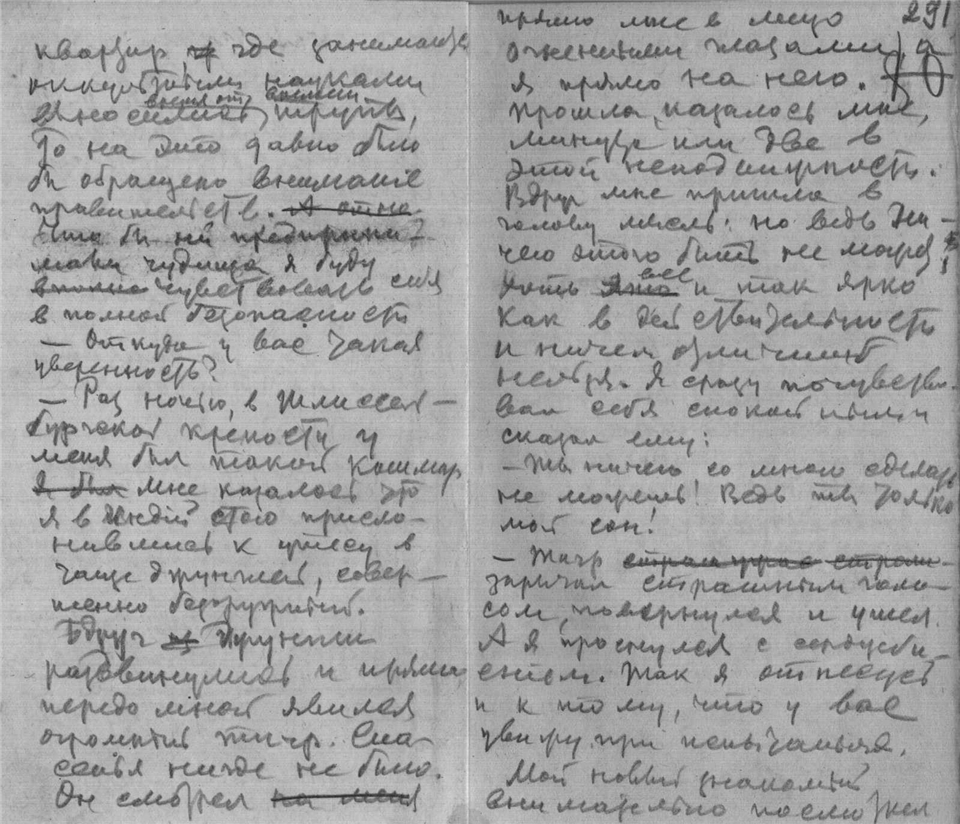 квартир где занимаются
оккультными науками
выносились время от времени трупы,
то на это давно было
бы обращено внимание
правительств. А от не
Что бы ни предприни-
мали чудища я буду
вполне чувствовать себя
в полной безопасности
— Откуда у вас такая
уверенность?
— Раз ночью, в Шлиссель-
бургской крепости у
меня был такой кошмар
Я был мне казалось что
я в Индии стою присло-
нившись к утесу в
чаще джунглей, совер-
шенно безоружный.
Вдруг джунгли
раздвинулись и прямо
передо мной явился
огромный тигр. Спа-
сенья нигде не было.
Он смотрел на меня
291
прямо мне в лицо
огненными глазами, а
я прямо на него.
Прошла, казалось мне,
минута или две в
этой неподвижности.
Вдруг мне пришла в
голову мысль: но ведь ни-
чего этого быть не может,
хоть это все и так ярко
как в действительности
и ничем отличить
нельзя. Я сразу почувство-
вал себя спокойным и
сказал ему:
— Ты ничего со мною сделать
не можешь! Ведь ты только
мой сон!
— Тигр
зарычал страшным голо-
сом, повернулся и ушел.
А я проснулся с сердцеби-
ением. Так я отнесусь
и к тому, что у вас
увижу при испытаньях.
Мой новый знакомый
внимательно посмотрел